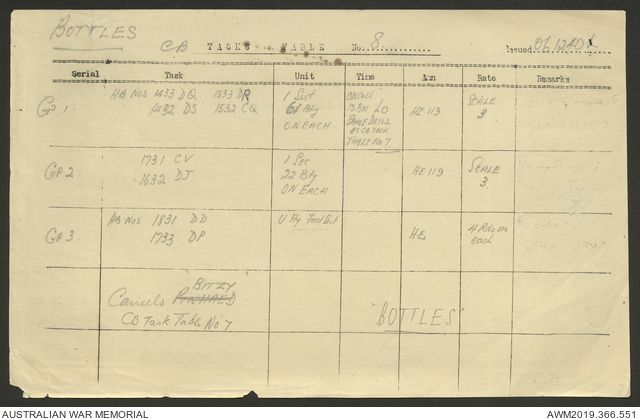 BOTTLES
CB TASKS TABLE No. 8 Issued 061240
Serial Task Unit Time Amn Rate Remarks
Gp 1 HB Nos 1433 DQ 1533 DR 1 Sect ON CALL HE 119 SCALE
1432 DS 1532 CQ Bty 15 RN LO 3
ON EACH SAME DRILL
AS CB TASK
TABLE No 7
Gp 2 1731 CV 1 Sec HE 119 SCALE
1632 DJ 22 Bty 3
ON EACH
Gp 3 HB Nos 1831 DD U Hy HE 4 Rds on
1733 DP each
BITZY
Cancels
CB Task Table No 7
"BOTTLES"
AUSTRALIAN WAR MEMORIAL AWM2019.366.551